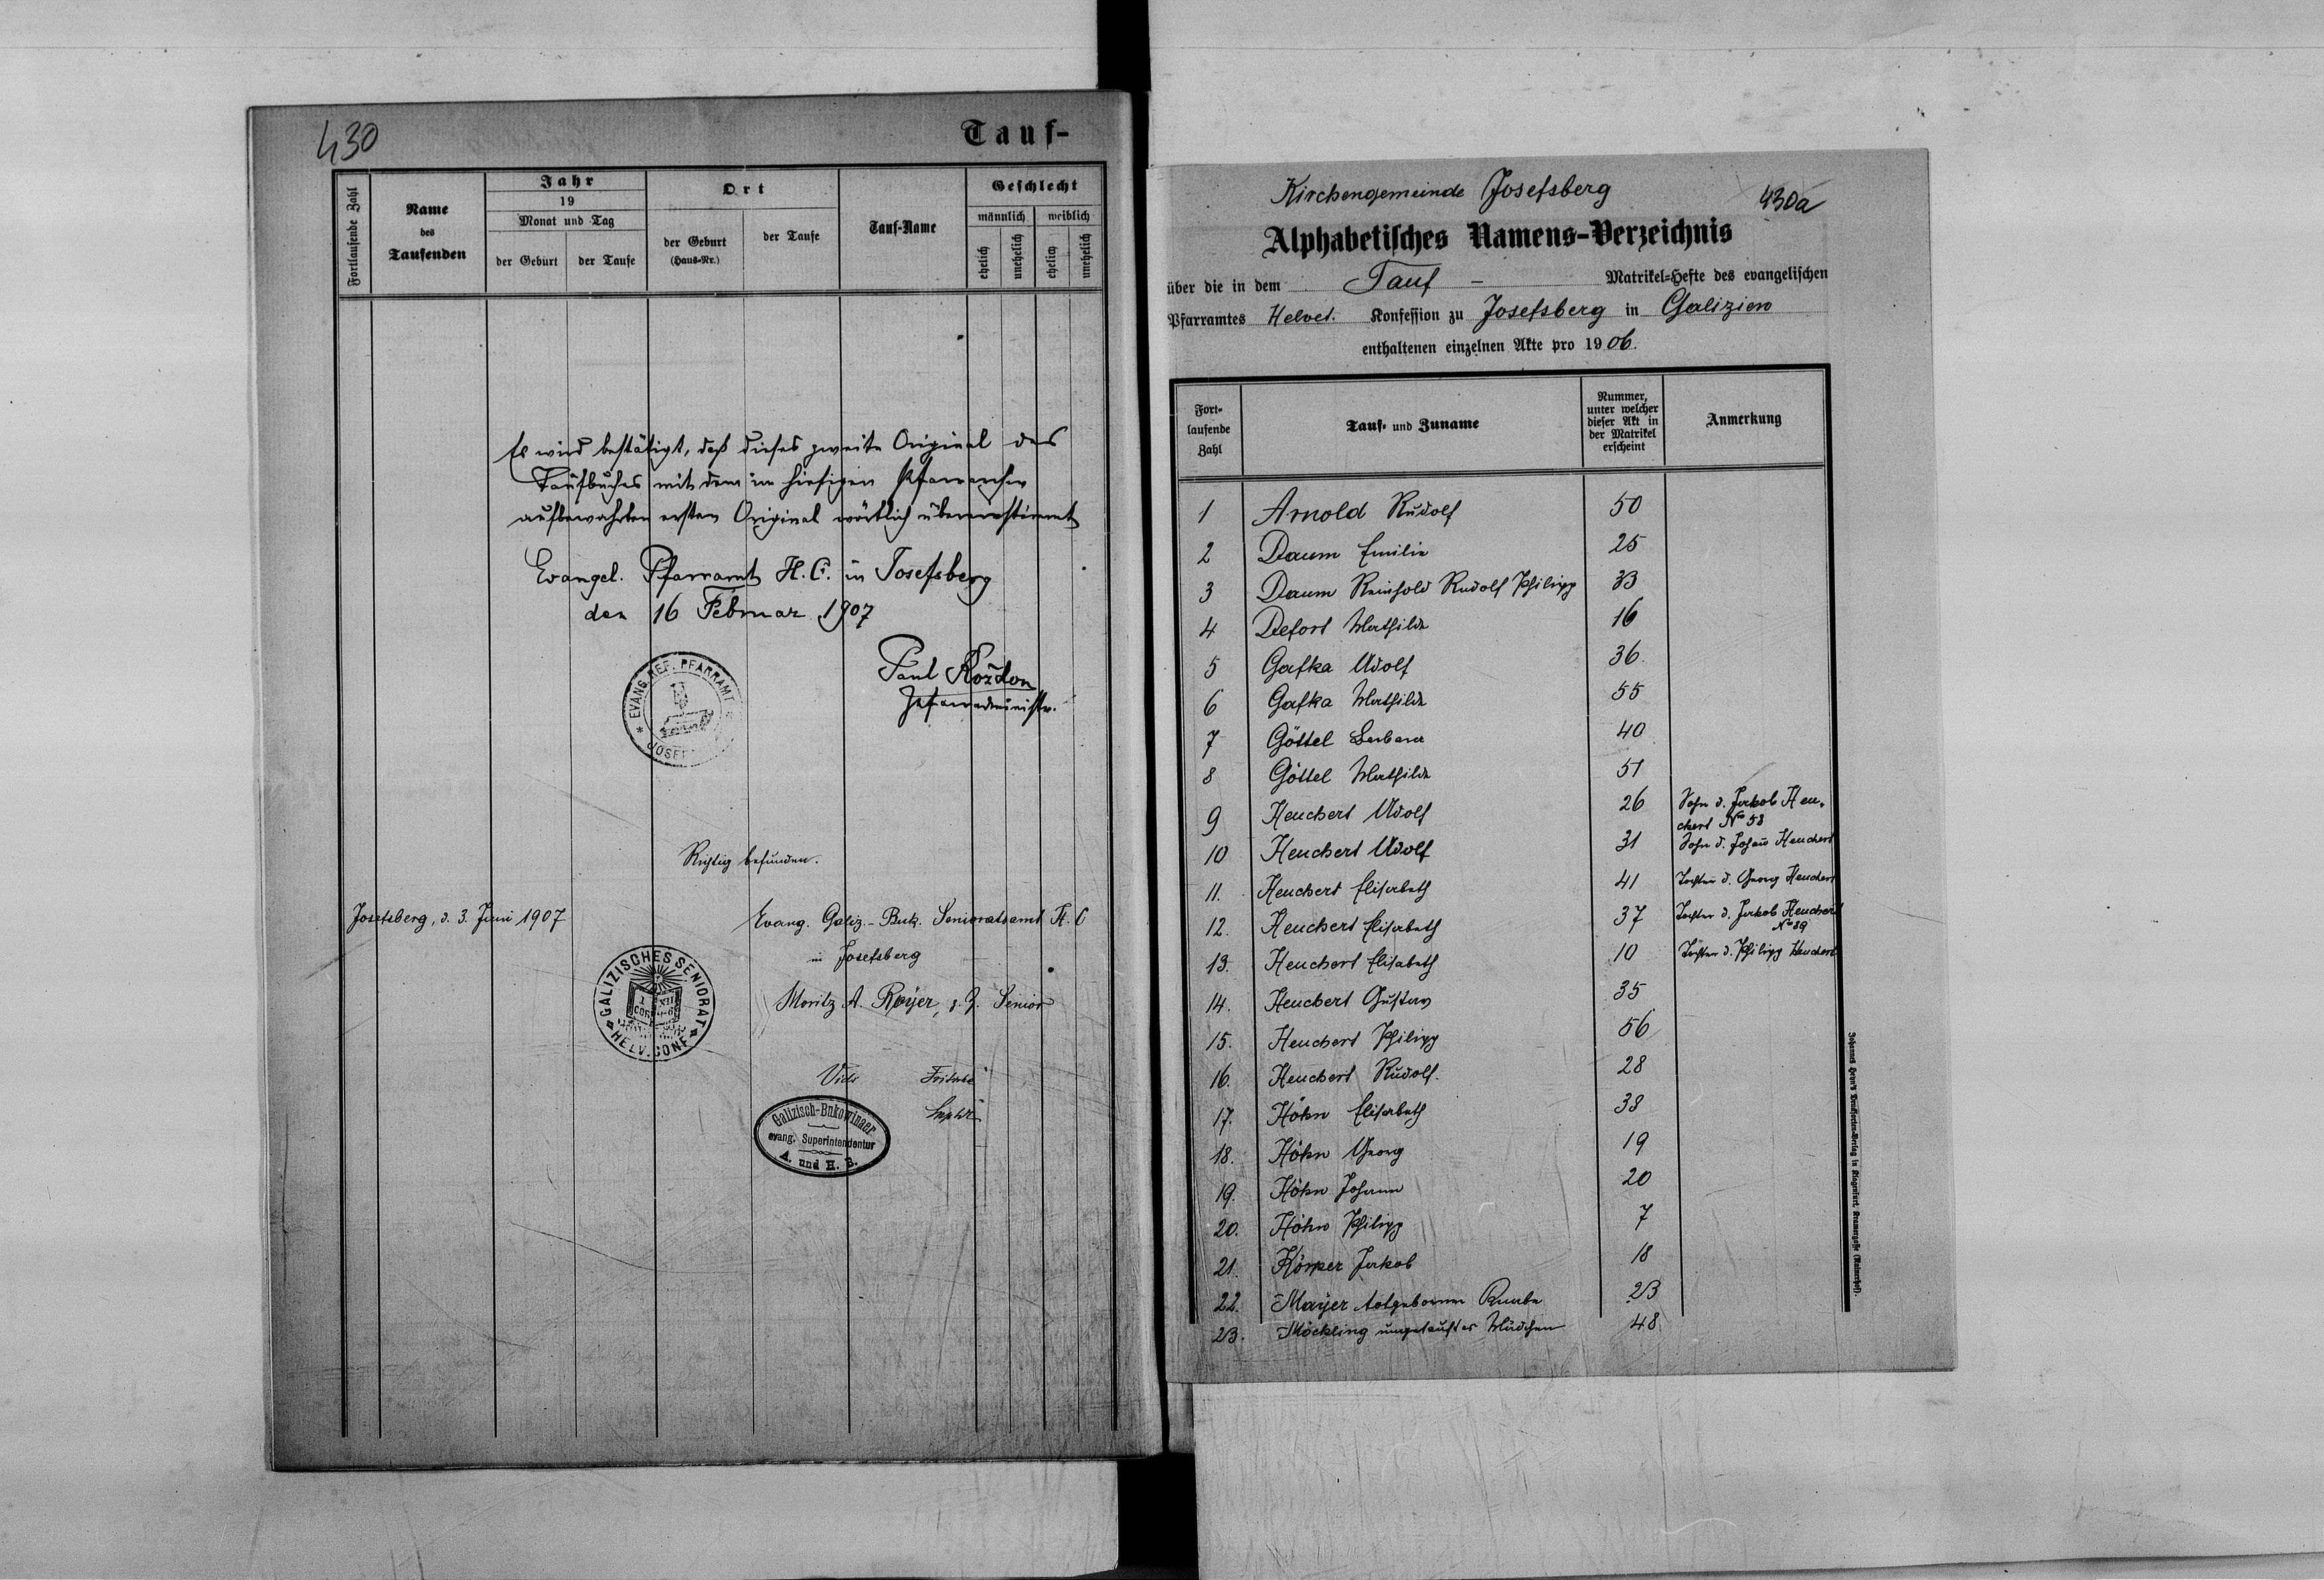 430
Tauf-
Fortlaufende Zahl
Name
des
Taufenden
Jahr
19
Monat und Tag
der Geburt
der Taufe
Ort
der Geburt
(Haus-Nr.)
der Taufe
Tauf-Name
Geschlecht
männlich
weiblich
ehelich
unehelich
ehelich
unehelich
Es wird bestätigt, daß dieses zweite Original des
Taufbuches mit dem im hiesigen Pfarrarchiv
aufbewahrten ersten Original wörtlich übereinstimmt
Evangel. Pfarramt H. C. in Josefsberg
den 16 Februar 1907
Paul Rozdon
Pfarradministr.
* EVANG. REF. PFARRAMT
JOSEF
Richtig befunden.
Josefsberg, d. 3. Juni 1907
Evang. Galiz.-Buk. Senioratsamt H. C
in Josefsberg
Moritz A. Royer, z. Z. Senior
GALIZISCHES SENIORAT
HELV. CONF.
I XII
COR 4-6
Vidi Fritsche
Suptdt
Galizisch-Bukowinaer
evang. Superintendentur
A. und H. B.
Kirchengemeinde Josefsberg
430a
Alphabetisches Namens-Verzeichnis
über die in dem Tauf - Matrikel-Hefte des evangelischen
Pfarramtes Helvet. Konfession zu Josefsberg in Galizien
enthaltenen einzelnen Akte pro 1906.
Fort-
laufende
Zahl
Tauf- und Zuname
Nummer,
unter welcher
dieser Akt in
der Matrikel
erscheint
Anmerkung
1 Arnold Rudolf 50
2 Daum Emilie 25
3 Daum Reinhold Rudolf Philipp 33
4 Defort Mathilde 16
5 Gafka Adolf 36.
6 Gafka Mathilde 55
7 Göttel Barbara 40
8 Göttel Mathilde 51
9 Heuchert Adolf 26 Sohn d. Jakob Heu-
chert No 58
10 Heuchert Adolf 31 Sohn d. Johann Heuchert
11. Heuchert Elisabeth 41 Tochter d. Georg Heuchert
12. Heuchert Elisabeth 37 Tochter d. Jakob Heuchert
No 89
13. Heuchert Elisabeth 10 Tochter d. Philipp Heuchert
14. Heuchert Gustav 35
15. Heuchert Philipp 56
16. Heuchert Rudolf. 28
17. Höhn Elisabeth 38
18. Höhn Georg 19
19. Höhn Johann 20
20. Höhn Philipp 7
21. Körper Jakob 18
22. Mayer totgeborener Knabe 23
23. Möckling ungetauftes Mädchen 48